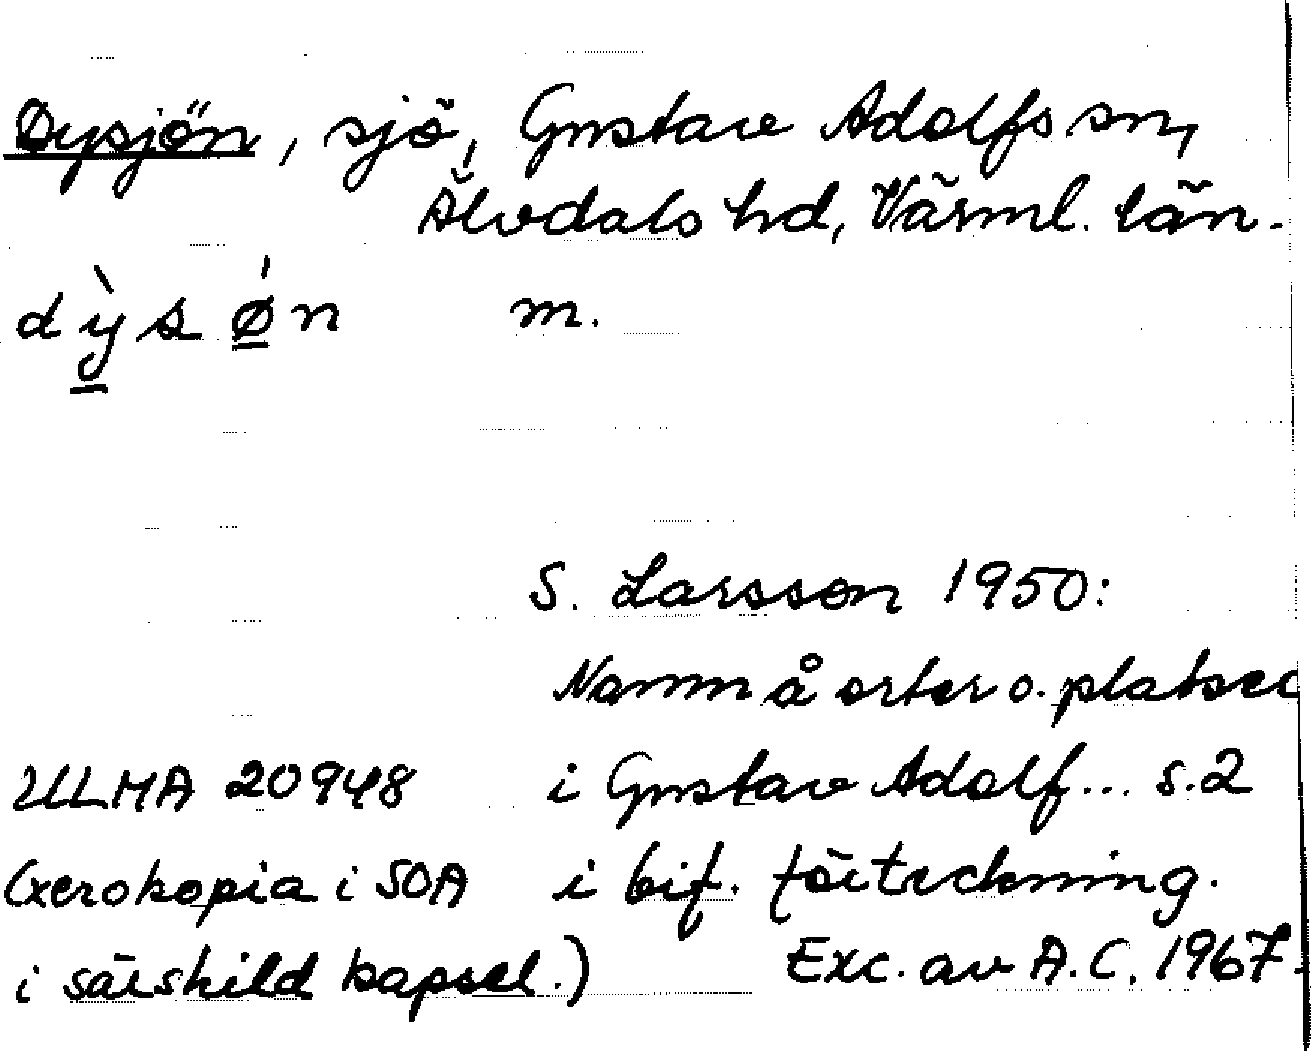 Dysjön, sjö, Gustav Adolfs sn,
Älvdals hd, Värml. län.
dỳ̱sǿ̱n m.
S. Larsson 1950:
Namn å orter o. platser
ULMA 20948 i Gustav Adolf... s.2
(xerokopia i SOA i bif. förteckning.
i särskild kapsel.) Exc. av A.C. 1967.